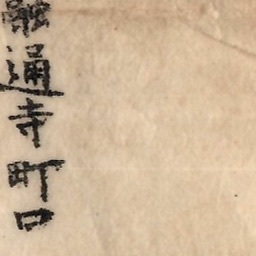 融通寺町口